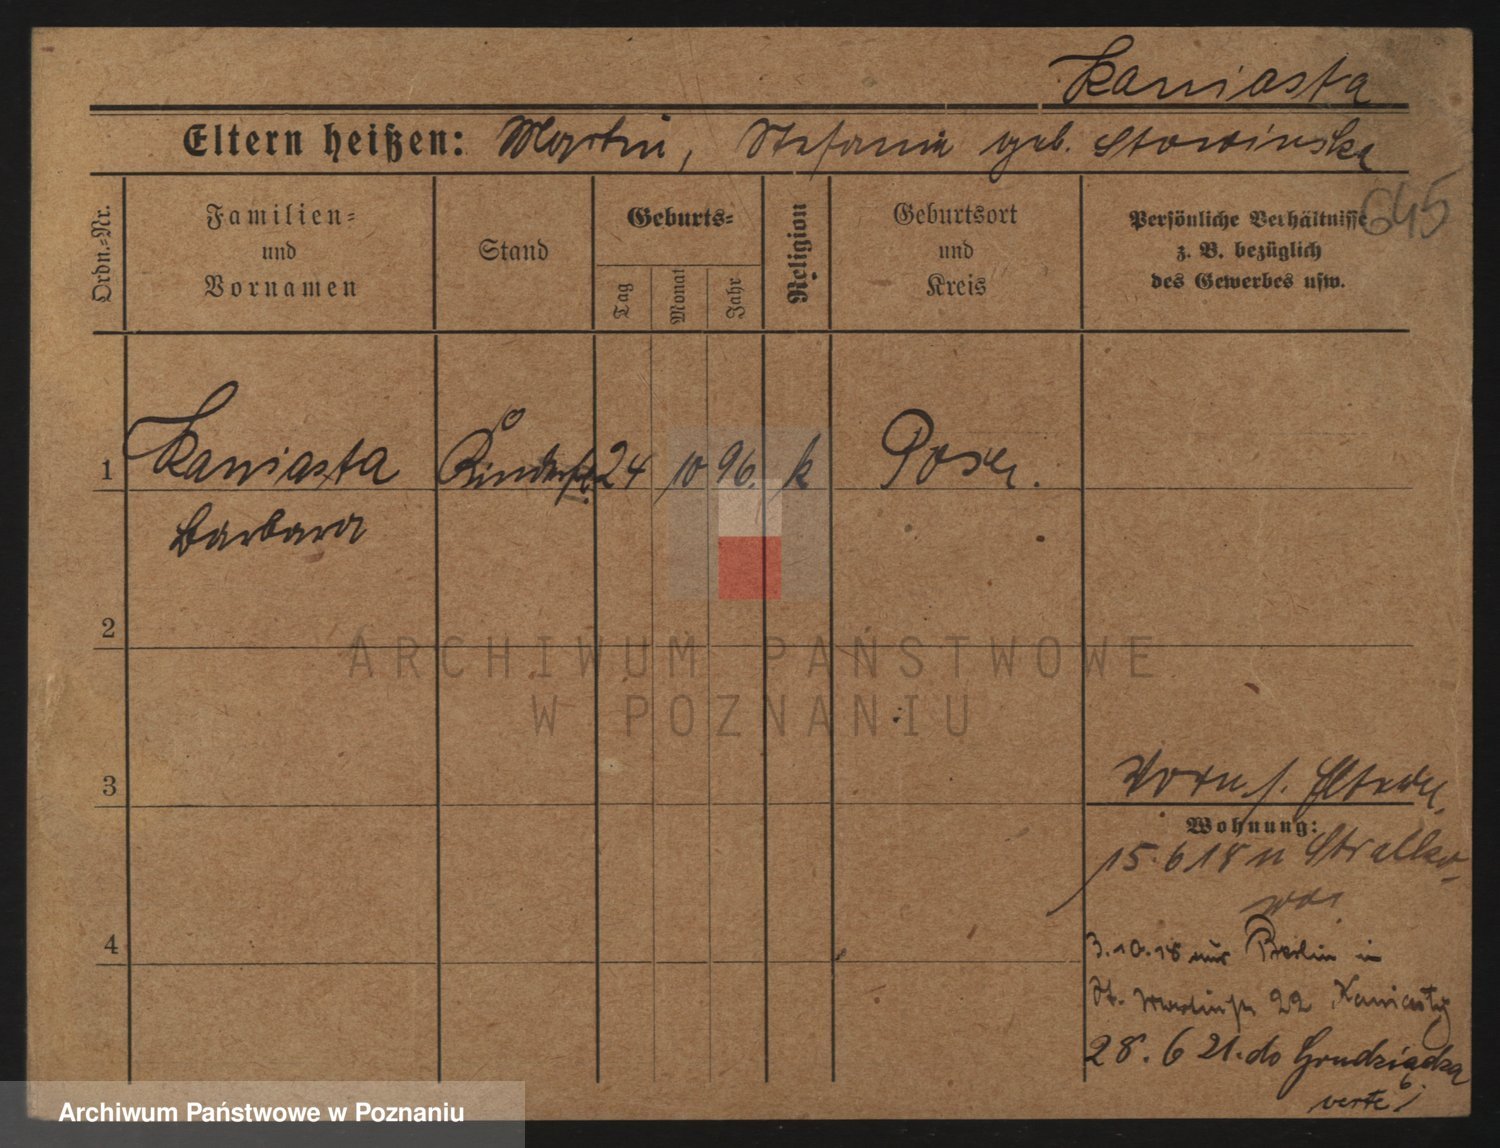 Kaniasta
Eltern heißen: Martin, Stefania geb. Slowinska
645
Ordn.=Nr.
Familien=
und
Vornamen
Stand
Geburts=
Tag
Monat
Jahr
Religion
Geburtsort
und
Kreis
Persönliche Verhältnisse
z. B. bezüglich
des Gewerbes usw.
1
Kaniasta
Barbara
24 10 96. k
Posen.
2
3
4
Vorn. s. Eltern.
Wohnung:
15.6 18 n Stralko-
wo.
3.10.18 aus Berlin in
St. Martinstr 22 Kaniasty
28. 6 21. do Grudziądza
verte!
ARCHIWUM PAŃSTWOWE
W POZNANIU
Archiwum Państwowe w Poznaniu